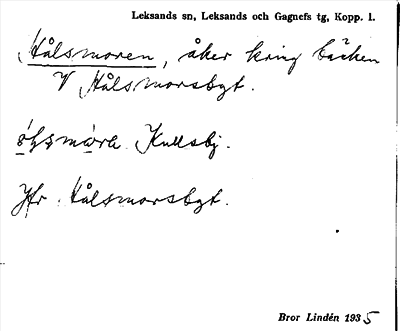 Leksands sn, Leksands och Gagnefs tg, Kopp. l.
Hålsmoren, åker kring bäcken
V Hålsmorsbyt.
Kullsbj.
Jfr. Hålsmorsbyt.
Bror Lindén 1935